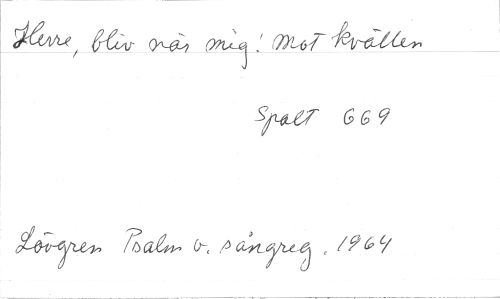 Herre, bliv när mig! Mot kvällen
Spalt 669
Lövgren Psalm o. sångreg. 1964